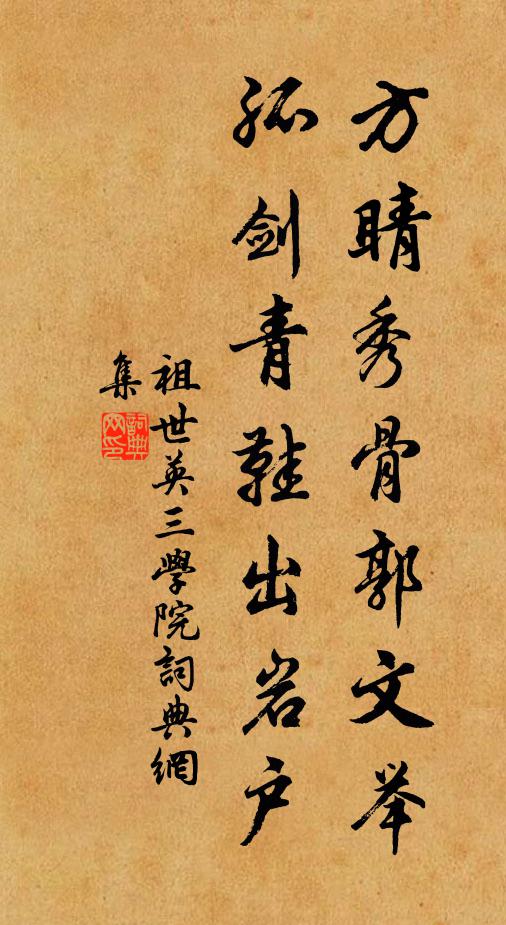 方睛秀骨郭文举
孤剑青鞋出岩户
祖世英三學院詞典網
集
詞典网印